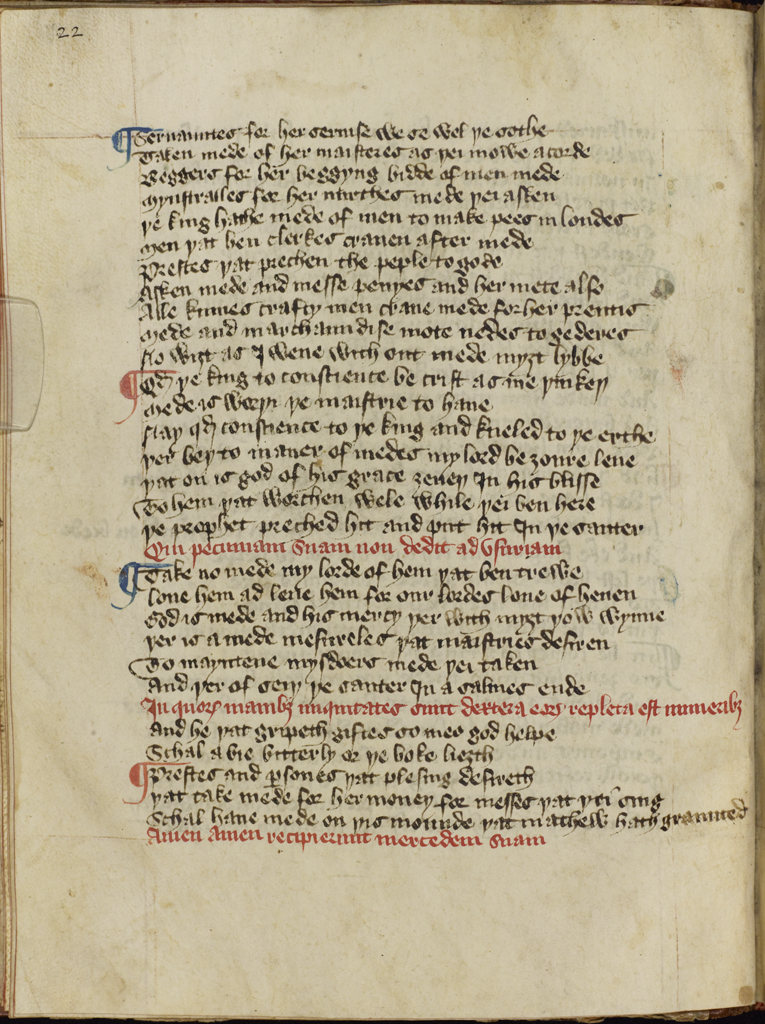 22
¶ Seruauntes for her seruise we se wel þe sothe
Taken mede of her maisteres as þei mowe acorde
Beggers for her beggyng bidde of men mede
Mynstrales for her murthes mede þei asken
þe king hathe mede of men to make pees in londes
Men þat ben clerkes crauen after mede
Prestes þat prechen the peple to gode
Asken mede and messe penyes and her mete also
Alle kinnes crafty men craue mede for her prentis
Mede and marchaundise mote nedes to gederes
No wiȝt as I wene with out mede myȝt lybbe
¶ Qd þe king to conscience be crist as me þinkeþ
Mede is worþi þe maistrie to haue
Nay qd conscience to þe king and kneled to þe erthe
þer beþ to maner of medes my lord be ȝoure leue
þat on is god of his grace ȝeueþ In his blisse
To hem þat worchen wele while þei ben here
þe prophet preched hit and put hit In þe sauter
Qui pecuniam suam non dedit ad vsuriam
¶ Take no mede my lorde of hem þat ben trewe
loue hem ad leue hem for our lordes loue of heuen
God is mede and his mercy þer with myȝt ȝow wynne
þer is a mede mesureles þat maistries desiren
To maynteue mysdoers mede þei taken
And þer of seiþ þe sauter In a salmes ende
In quorꝫ manibꝫ iniquitates sunt dextera eorꝫ repleta est muneribꝫ
And he þat gripeth giftes so meo god helpe
Schal abie bitterly or þe boke lieȝth
¶ Prestes and psones þat plesing desireth
þat take mede for her money for messes þat þei sing
Schal haue mede on þis mounde þat mathew hath graunted
Amen amen recipierunt mercedem suam